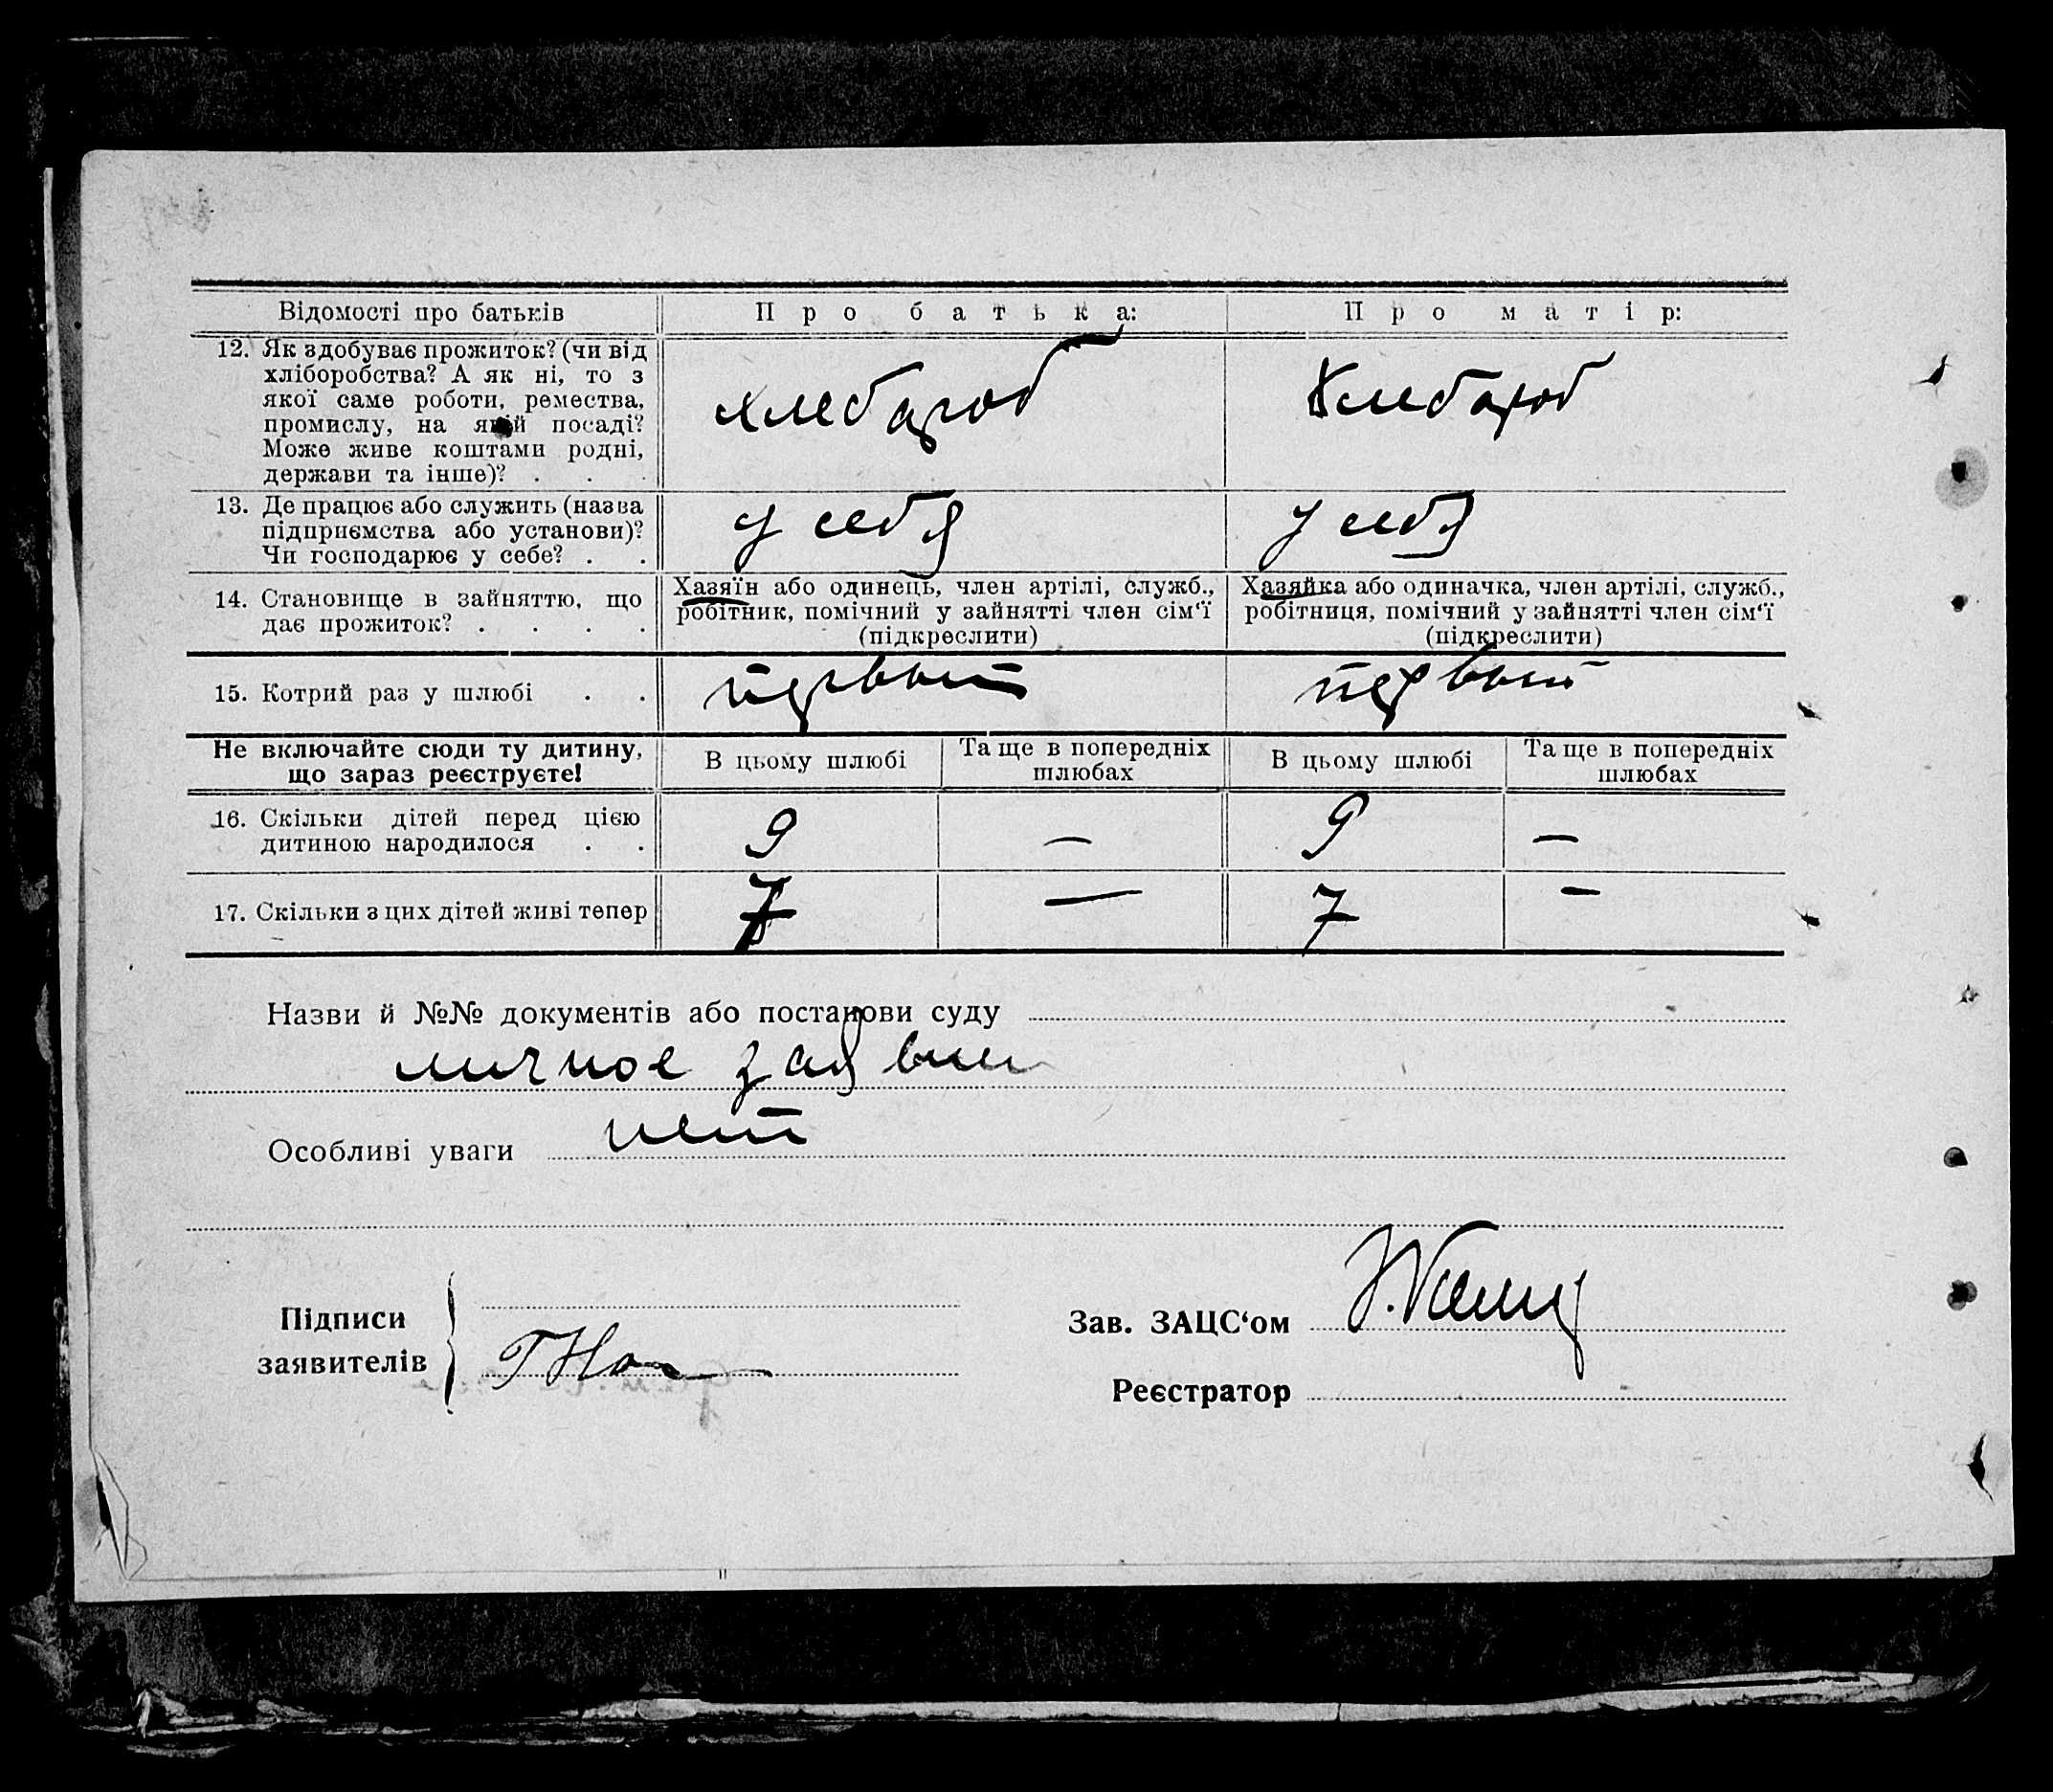 Відомості про батьків Про батька: Про матір:
12. Як здобуває прожиток? (чи від
хліборобства? А як ні, то з
якої саме роботи, ремества,
промислу, на якій посаді?
Може живе коштами родні,
держави та інше)? . .
хлебороб Хлебороб
13. Де працює або служить (назва
підприємства або установи)?
Чи господарює у себе? . .
у себя у себя
14. Становище в зайняттю, що
дає прожиток? . . . .
Хазяїн або одинець, член артілі, служб.,
робітник, помічний у зайнятті член сім'ї
(підкреслити)
Хазяйка або одиначка, член артілі, служб.,
робітниця, помічний у зайнятті член сім'ї
(підкреслити)
15. Котрий раз у шлюбі . . первый первый
Не включайте сюди ту дитину,
що зараз реєструєте!
В цьому шлюбі
Та ще в попередніх
шлюбах
В цьому шлюбі
Та ще в попередніх
шлюбах
16. Скільки дітей перед цією
дитиною народилося . .
9 — 9 —
17. Скільки з цих дітей живі тепер 7 — 7 —
Назви й №№ документів або постанови суду
личное заявлен
Особливі уваги нет
Підписи
заявителів
Зав. ЗАЦС'ом
Реєстратор